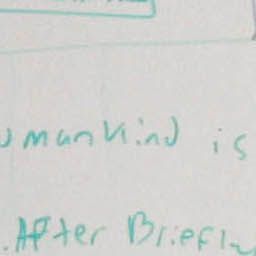 umankind is
. After Briefly